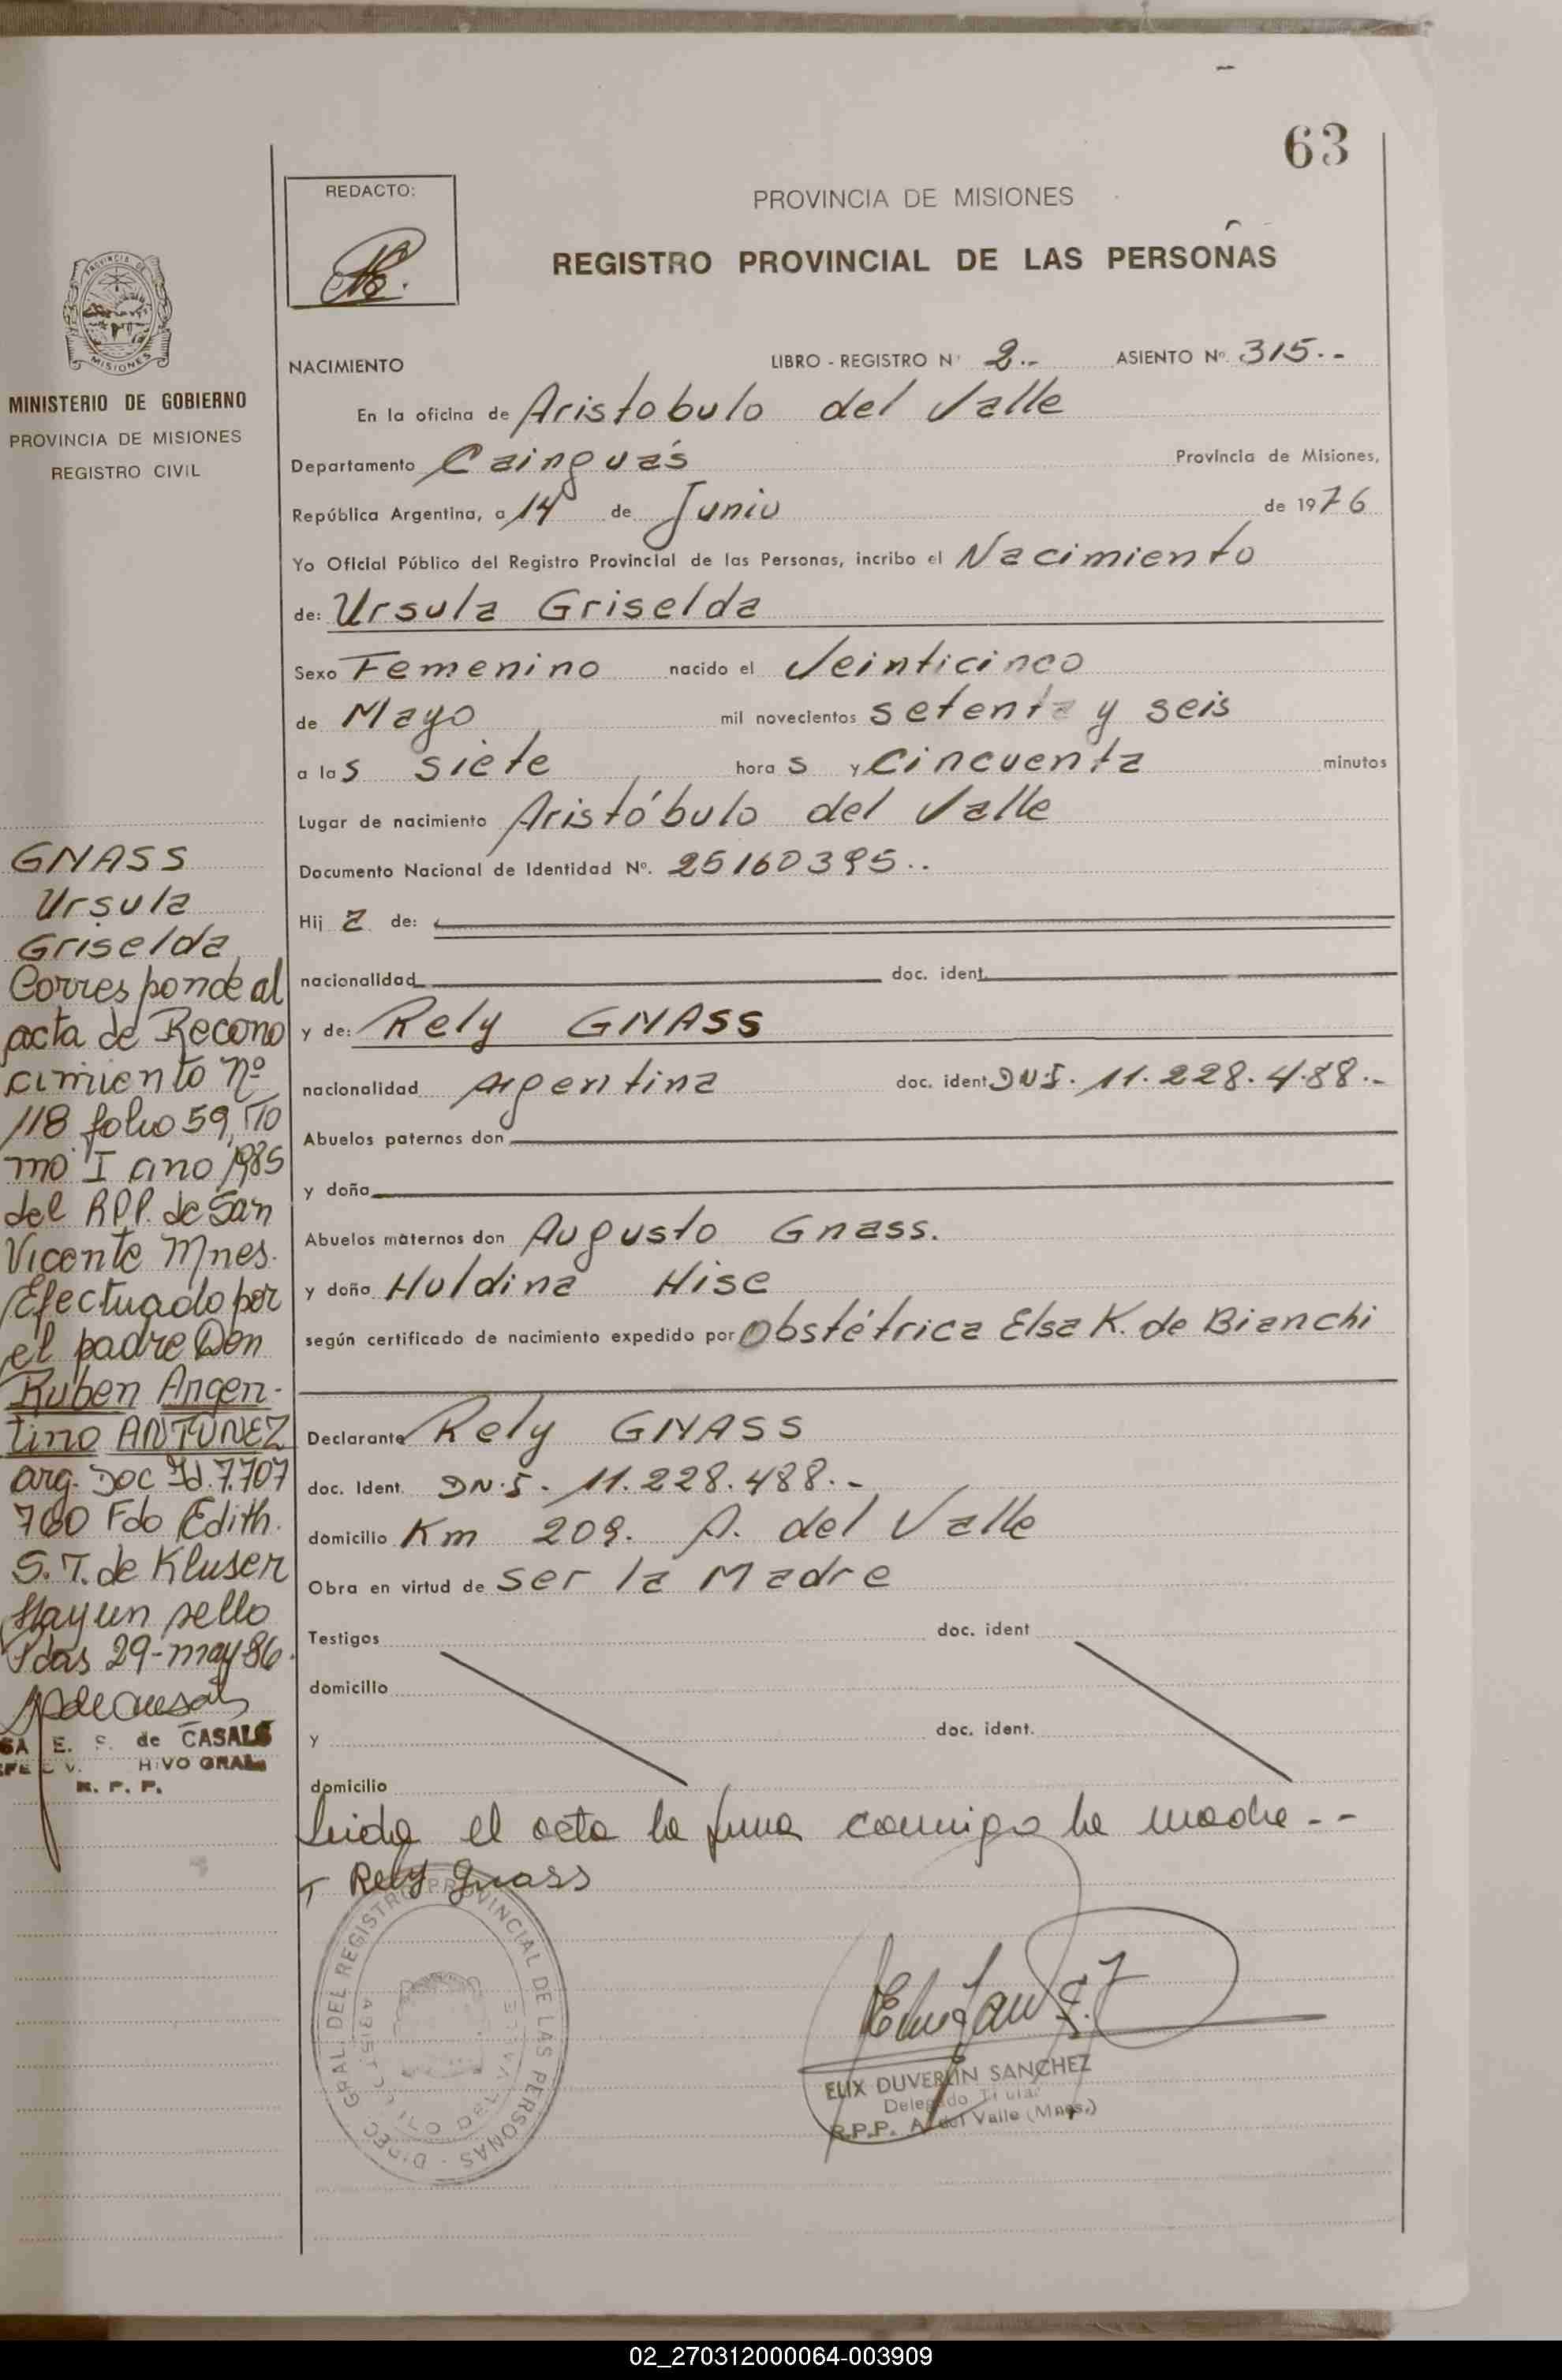 63
REDACTO:
PROVINCIA DE MISIONES
REGISTRO PROVINCIAL DE LAS PERSONAS
PROVINCIA DE
MISIONES
MINISTERIO DE GOBIERNO
PROVINCIA DE MISIONES
REGISTRO CIVIL
NACIMIENTO LIBRO - REGISTRO Nº 2.- ASIENTO Nº 315.--
En la oficina de Aristobulo del Valle
Departamento Cainguás Provincia de Misiones,
República Argentina, a 14 de Junio de 1976
Yo Oficial Público del Registro Provincial de las Personas, incribo el Nacimiento
de: Ursula Griselda
Sexo Femenino nacido el Veinticinco
de Mayo mil novecientos setenta y seis
a las siete horas y cincuenta minutos
Lugar de nacimiento Aristóbulo del Valle
Documento Nacional de Identidad Nº. 25160395..
Hija de:
nacionalidad doc. ident.
y de: Rely GNASS
nacionalidad Argentina doc. ident. DN.I. 11.228.488.-
Abuelos paternos don
y doña
Abuelos maternos don Augusto Gnass.
y doña Huldina Hise
según certificado de nacimiento expedido por Obstétrica Elsa K. de Bianchi
Declarante Rely GNASS
doc. Ident. DN.I. 11.228.488.-
domicilio Km 209. A. del Valle
Obra en virtud de ser la Madre
Testigos doc. ident
domicilio
y doc. ident.
domicilio
Leida el acta la firma conmigo la madre.--
Rely Gnass
GNASS
Ursula
Griselda
Corresponde al
acta de Recono
cimiento Nº
118 folio 59, To
mo I año 1985
del RPP. de San
Vicente Mnes.
Efectuado por
el padre Don
Ruben Argen-
tino ANTUNEZ
arg. Doc Id. 7.707
760 Fdo Edith.
S. T. de Kluser
Hay un sello
Pdas 29-may-86.
E. S. de CASALS
R. P. P.
DIREC. GRAL. DEL REGISTRO PROVINCIAL DE LAS PERSONAS
ELIX DUVERLIN SANCHEZ
Delegado Titular
R.P.P. A. del Valle (Mnes.)
02_270312000064-003909